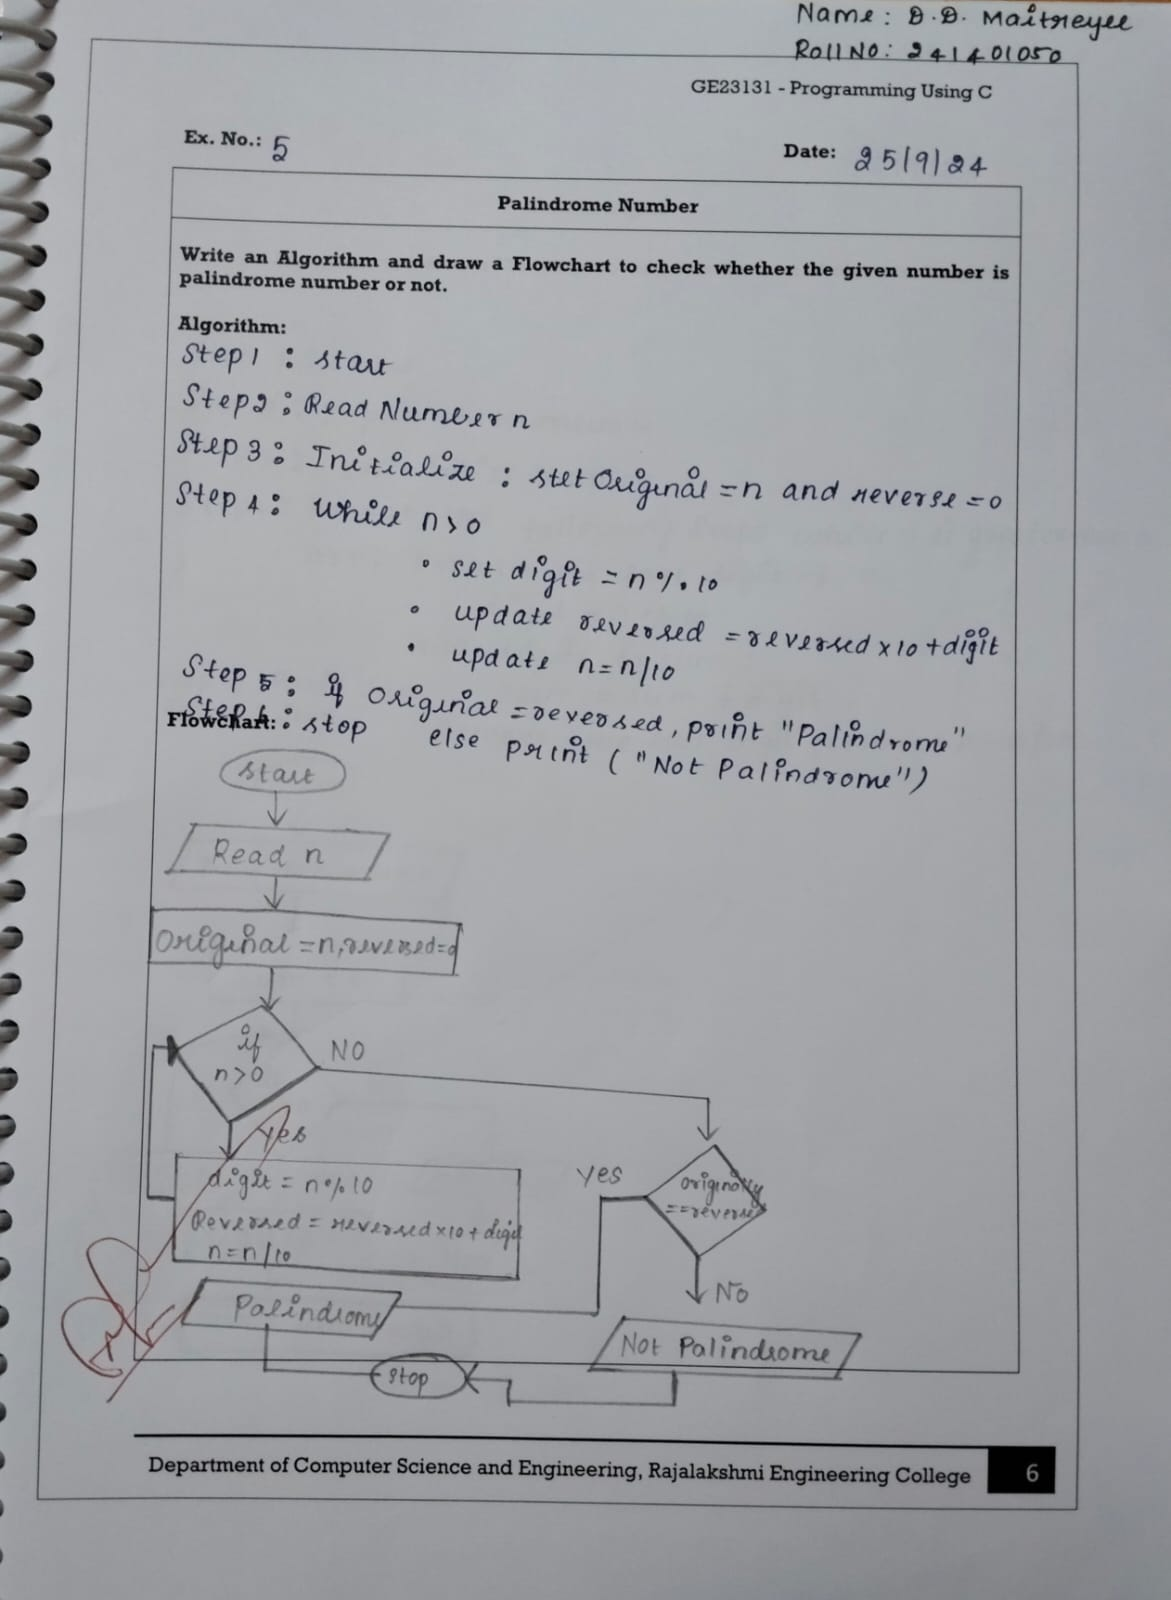 Name: D.D. Maitreyee
Roll No: 241401050
GE23131 - Programming Using C
Ex. No.: 5
Date: 25/9/24
Palindrome Number
Write an Algorithm and draw a Flowchart to check whether the given number is
palindrome number or not.
Algorithm:
Step 1 : start
Step 2 : Read Number n
Step 3 : Initialize : stet Original = n and reverse = 0
Step 4 : While n>0
• set digit = n % 10
• update reversed = reversed x 10 + digit
• update n = n/10
Step 5 : if Original = reversed, print "Palindrome"
else print ("Not Palindrome")
Step 6 : stop
Flowchart:
Start
Read n
Original = n, reversed = 0
if
n>0
NO
Yes
digit = n % 10
Reversed = reversed x 10 + digit
n = n/10
Yes
== reverse
No
Palindrome
Not Palindrome
Stop
Department of Computer Science and Engineering, Rajalakshmi Engineering College
6